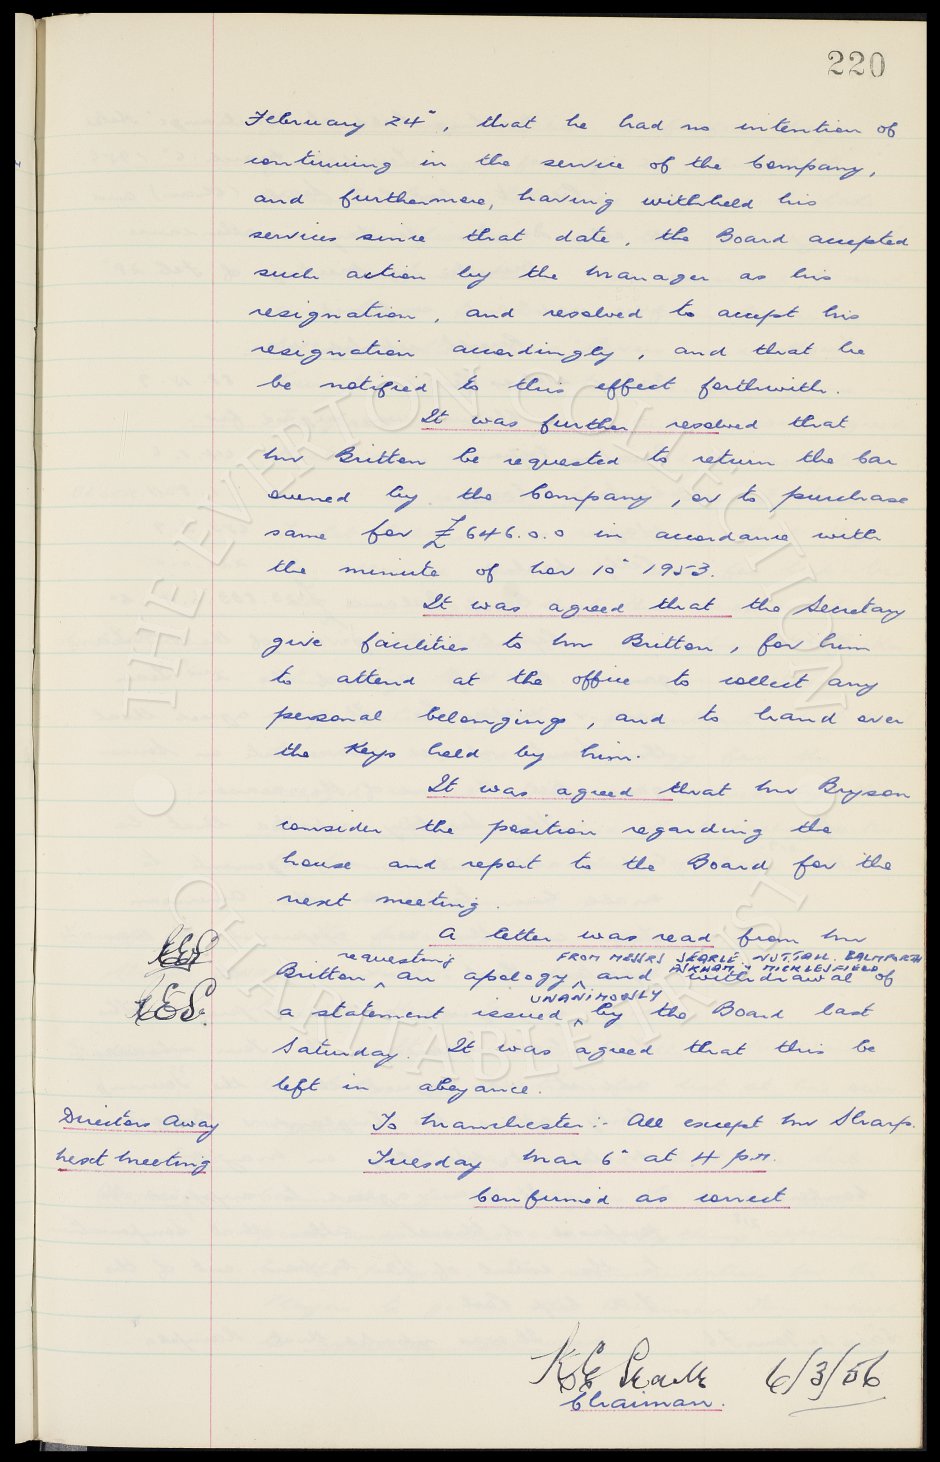 220
February 24", that he had no intention of
continuing in the service of the Company,
and furthermore, having withheld his
services since that date, the Board accepted
such action by the Manager as his
resignation, and resolved to accept his
resignation accordingly, and that he
be notified to this effect forthwith.
It was further resolved that
Mr Britton be requested to return the Car
owned by the Company, or to purchase
same for £646.0.0 in accordance with
the minute of Nov 10" 1953.
It was agreed that the Secretary
give facilities to Mr Britton, for him
to attend at the office to collect any
personal belongings, and to hand over
the Keys held by him.
It was agreed that Mr Bryson
consider the position regarding the
house and report to the Board for the
next meeting.
A letter was read from Mr
requesting FROM MESSRS SEARLE. NUTTALL. BALMFORTH
KIRKHAM & MICKLESFIELD
Britton ^ an apology ^ and withdrawal of
UNANIMOUSLY
a statement issued ^ by the Board last
Saturday. It was agreed that this be
left in abeyance.
Directors Away To Manchester:- All except Mr Sharp.
Next Meeting Tuesday Mar 6" at 4 p.m.
Confirmed as correct
6/3/56
Chairman.
THE EVERTON COLLECTION
CHARITABLE TRUST